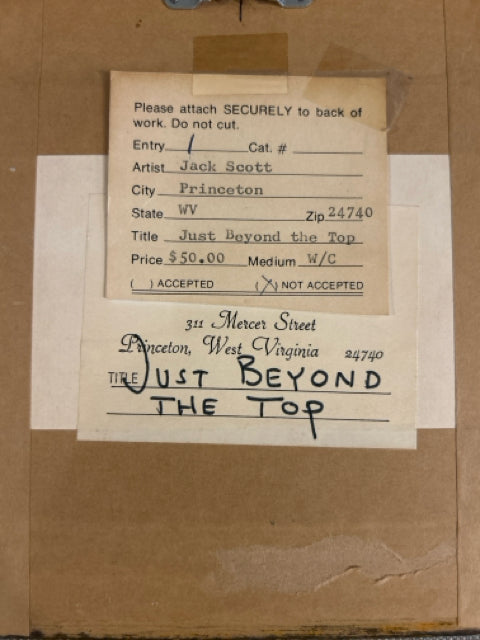 Please attach SECURELY to back of
work. Do not cut.
Entry 1 Cat. #
Artist Jack Scott
City Princeton
State WV Zip 24740
Title Just Beyond the Top
Price $50.00 Medium W/C
( ) ACCEPTED (X) NOT ACCEPTED
311 Mercer Street
Princeton, West Virginia 24740
TITLE JUST BEYOND
THE TOP